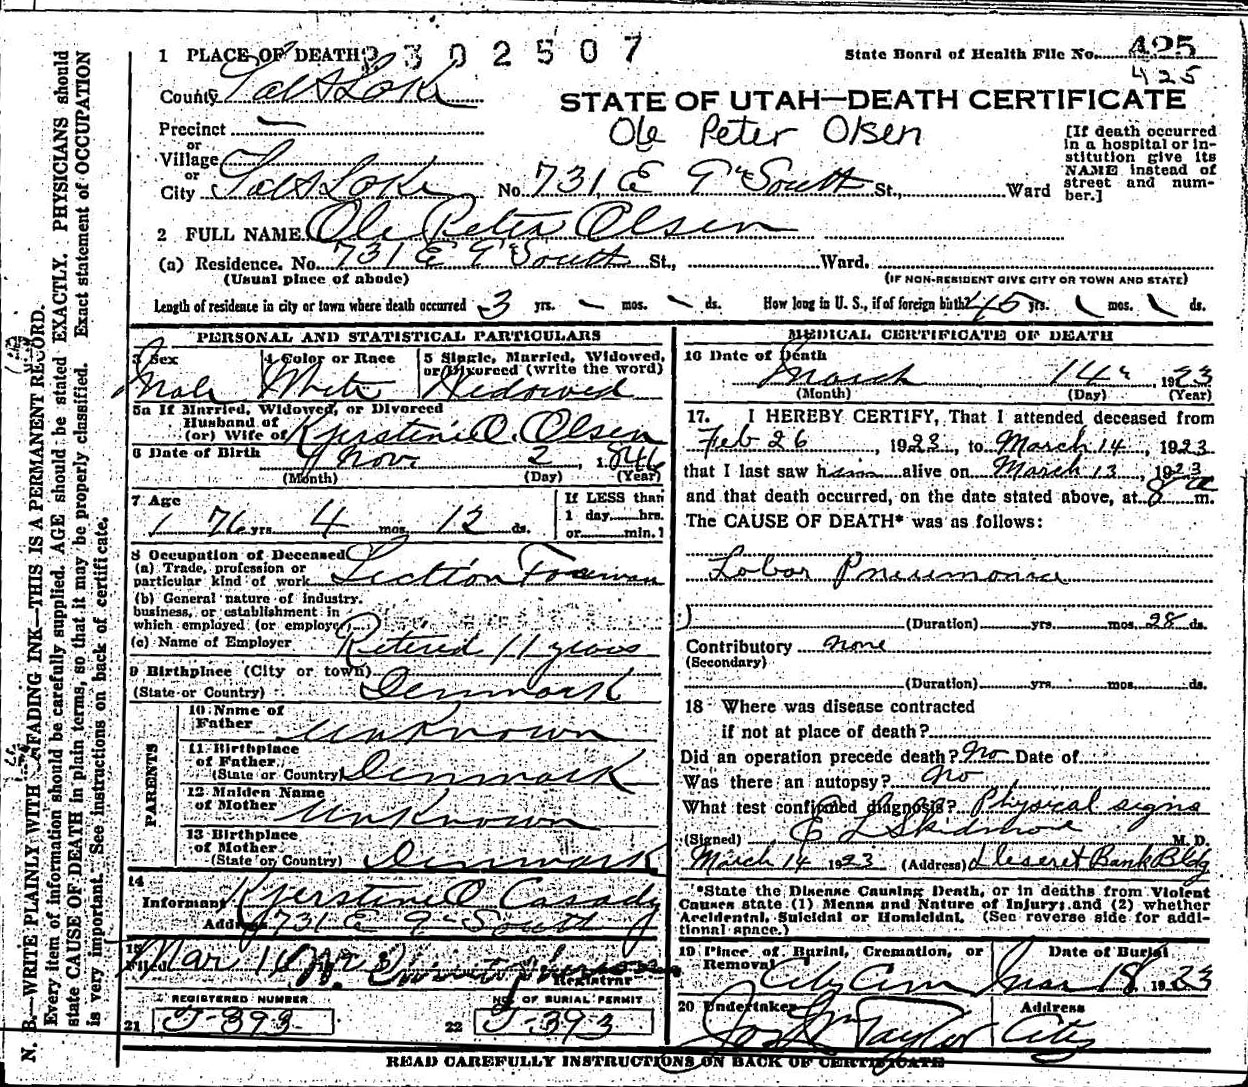 1 PLACE OF DEATH 2302507
State Board of Health File No. 425
425
County Salt Lake
STATE OF UTAH—DEATH CERTIFICATE
Ole Peter Olsen
Precinct —
or
Village
or
City Salt Lake No. 731 E 9th South St., Ward
[If death occurred in a hospital or institution give its NAME instead of street and number.]
2 FULL NAME Ole Peter Olsen
(a) Residence. No. 731 E 9th South St., Ward.
(Usual place of abode) (IF NON-RESIDENT GIVE CITY OR TOWN AND STATE)
Length of residence in city or town where death occurred 3 yrs. – mos. – ds. How long in U. S., if of foreign birth? 45 yrs. \ mos. \ ds.
PERSONAL AND STATISTICAL PARTICULARS
3 Sex 4 Color or Race 5 Single, Married, Widowed, or Divorced (write the word)
Male White Widowed
5a If Married, Widowed, or Divorced
Husband of
(or) Wife of Kjerstine O. Olsen
6 Date of Birth Nov. 2, 1846
(Month) (Day) (Year)
7 Age If LESS than
76 yrs. 4 mos. 12 ds. 1 day......hrs.
or......min.?
8 Occupation of Deceased
(a) Trade, profession or
particular kind of work Section Foreman
(b) General nature of industry,
business, or establishment in
which employed (or employer)
(c) Name of Employer Retired 11 years
9 Birthplace (City or town)
(State or Country) Denmark
PARENTS
10 Name of Father Unknown
11 Birthplace of Father
(State or Country) Denmark
12 Maiden Name of Mother Unknown
13 Birthplace of Mother
(State or Country) Denmark
14
Informant Kjerstine O Casady
Address 731 E 9th South
15
Filed Mar 16
Registrar
REGISTERED NUMBER NO. OF BURIAL PERMIT
21 J-393 22 J-393
MEDICAL CERTIFICATE OF DEATH
16 Date of Death
March 14, 1923
(Month) (Day) (Year)
17. I HEREBY CERTIFY, That I attended deceased from
Feb 26, 1923, to March 14, 1923
that I last saw him alive on March 13, 1923
and that death occurred, on the date stated above, at 8 a m.
The CAUSE OF DEATH* was as follows:
Lobar Pneumonia
(Duration) yrs. mos. 28 ds.
Contributory none
(Secondary)
(Duration) yrs. mos. ds.
18 Where was disease contracted
if not at place of death?
Did an operation precede death? No Date of
Was there an autopsy? No
What test confirmed diagnosis? Physical signs
(Signed) E L Skidmore M. D.
March 14 1923 (Address) Deseret Bank Bldg
*State the Disease Causing Death, or in deaths from Violent
Causes state (1) Means and Nature of Injury; and (2) whether
Accidental, Suicidal or Homicidal. (See reverse side for additional space.)
19 Place of Burial, Cremation, or Removal Date of Burial
City Cem Mar 18, 1923
20 Undertaker Address
Jos Wm Taylor City
READ CAREFULLY INSTRUCTIONS ON BACK OF CERTIFICATE
N. B.—WRITE PLAINLY WITH UNFADING INK—THIS IS A PERMANENT RECORD.
Every item of information should be carefully supplied. AGE should be stated EXACTLY. PHYSICIANS should
state CAUSE OF DEATH in plain terms, so that it may be properly classified. Exact statement of OCCUPATION
is very important. See instructions on back of certificate.